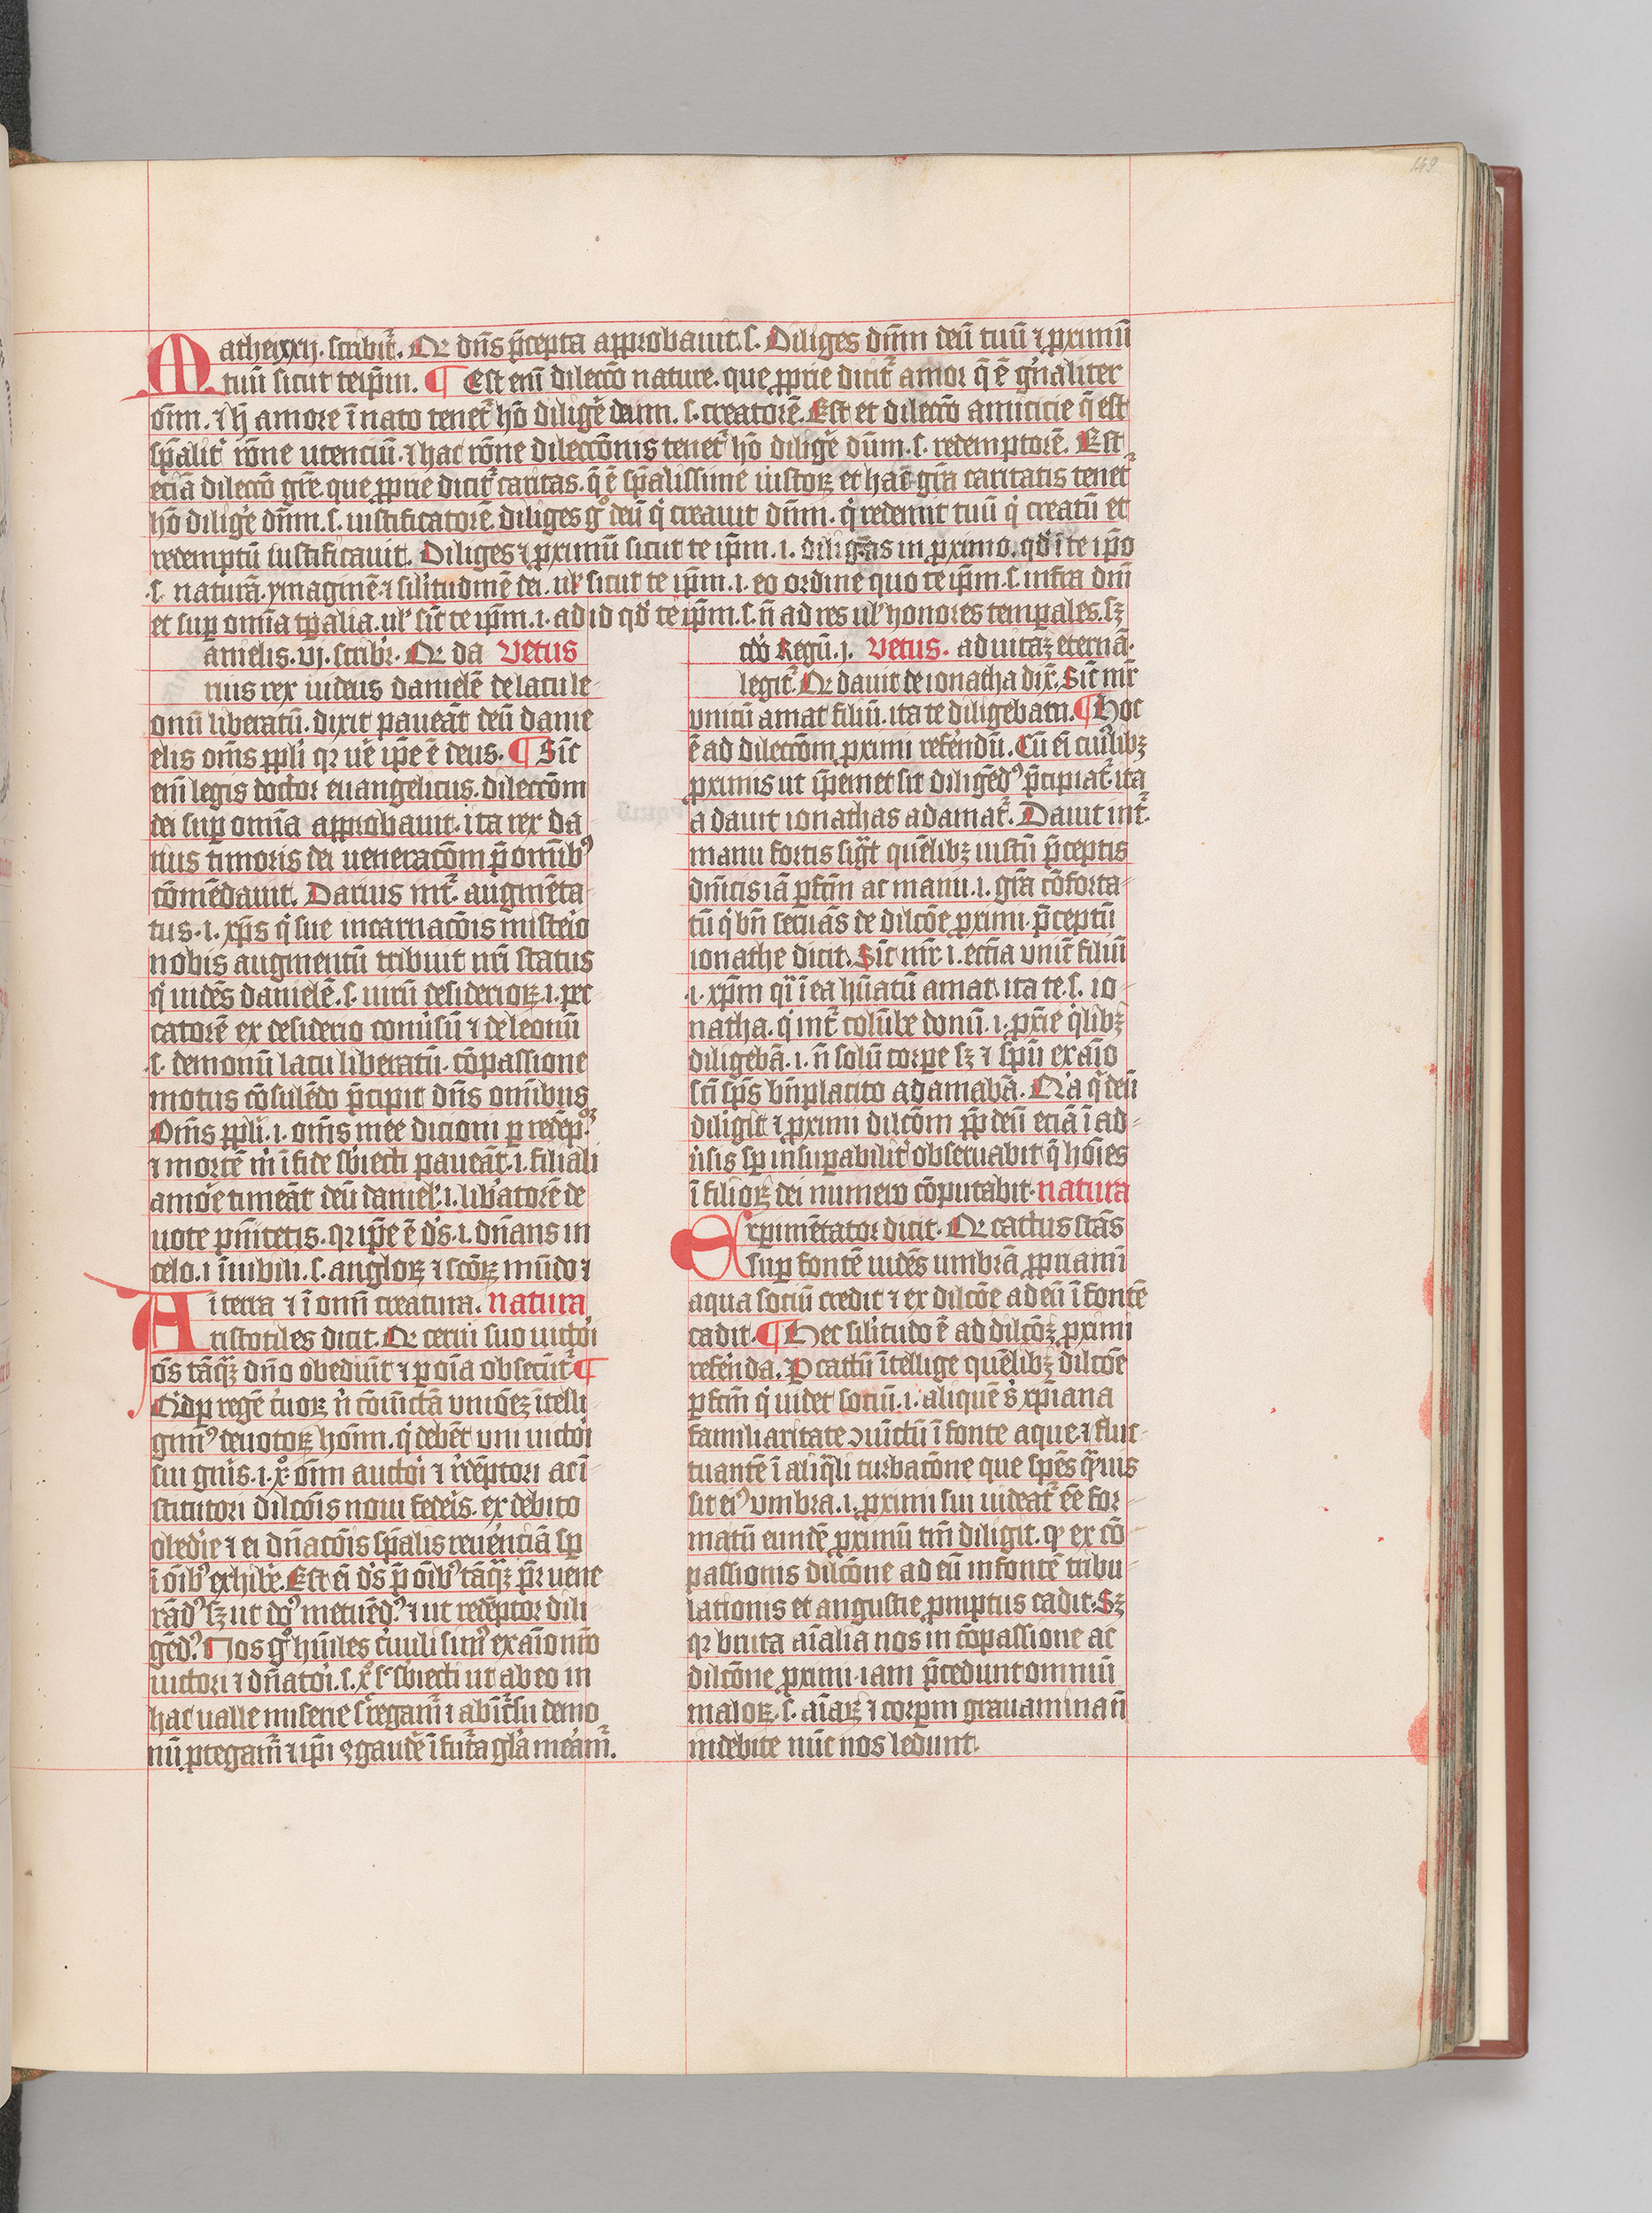 149
Mathei xxij. scribit᷑. Qr dn̄s p̄cepta approbauit. s. Diliges dn̄m deū tuū ⁊ ꝓximū
tuū sicut teip̄m. ¶ Est eni᷑ dilecc̄o nature. que ꝓprie dicit᷑ amor q̄ ē gn̄aliter
oīm. ⁊ h̄ amore īnato tenet᷑ hō diligē dnm. s. creatorē. Est et dilecc̄o amicicie q̄ est
sp̄alit᷑ rōne utenciū. ⁊ hac rōne dilecc̄onis tenet᷑ hō diligē dūm. s. redemptorē. Est
eciā dilecc̄o gr̄e. que ꝓprie dicit᷑ caritas. q̄ ē sp̄alissime iustoꝝ et hac gr̄a caritatis tenet᷑
hō diligē dn̄m. s. iustificatorē. diliges gͦ deū qͥ creauit dn̄m. qͥ redemit tuū qͥ creatū et
redemptū iustificauit. Diliges ⁊ ꝓximū sicut te ip̄m. i. diligas in ꝓximo. qd̄ ī te ip̄o
.s. naturā. ymaginē ⁊ silitudinē dei. ul᷑ sicut te ip̄m. i. eo ordine quo te ip̄m. s. infra dn̄i
et suꝑ omīa tꝑalia. ul᷑ sic̄ te ip̄m. i. ad id qd̄ te ip̄m. s. n̄ ad res ul᷑ honores temporales. sꝫ
anielis. vj. scribr̄. Qr da Vetus
rius rex uidens danielē de lacu le-
onū liberatū. dixit paueāt deū danie
elis om̄s ppl̄i qꝛ ue᷑ ip̄e ē deus. ¶ Sic̄
eni᷑ legis doctor euangelicus. dilecc̄om
dei suꝑ omīa approbauit. ita rex da
rius timoris dei ueneracōm p̄ omībꝰ
cōmēdauit. Darius int᷑. augmēta-
tus. i. xp̄s qͥ sue incarnacōis misteio
nobis augmentū tribuit nr̄i status
qͥ uidēs danielē. s. uirū desiderioꝝ. i. pec
catorē ex desiderio conūsū ⁊ de leonū
.s. demonū lacu liberatū. cōpassione
motus cōsulēdo p̄cipit dn̄s omībus
Om̄s ppl̄i. i. om̄s mee dicioni ꝑ redēp.
⁊ mortē m̄ ī fide sb̄iecti paueāt. i. filiali
amoē timeāt deū daniel᷑. i. lib̄atorē de
uote pn̄itetis. qꝛ ip̄e ē ds̄. i. dn̄ans in
celo. i īuibili. s. angloꝝ ⁊ sc̄oꝝ mūdo ⁊
ī terra ⁊ ī omī creatura. natura
Aristotiles dicit. Qr cerui suo uictoi
ōs tāqꝫ dn̄o obediūt ⁊ ꝑ oīa obsecūt᷑. ¶
regē
gimꝰ deuotoꝝ hoīm. qͥ debēt uni uictoi
sui gn̄is. i. x̄. oīm auctoi ⁊ rēdēptori ac ī-
stitutori dilcōis noui federis. ex debito
obedie ⁊ ei dn̄acōis sp̄alis reuenciā sp̄
ī oībꝰ exhibē. Est ei᷑ ds̄ p̄ oībꝰ tāqꝫ pr̄ uene
rādꝰ sꝫ ut dꝰ metuēdꝰ. ⁊ ut redēptor dili
gēdꝰ. Nos gͦ hūiles cūuli simꝰ ex aīo nr̄o
uictori ⁊ dn̄atoi. s. x̄ sb̄iecti ut ab eo in
hac ualle miserie regam᷑ ⁊ ab īc̄su demo
nū ꝓtegam᷑ ⁊ ip̄i ꝯgaudē ī fut᷑a gl̄a meām᷑.
cd̄o Regū. j. Vetus. ad uitaꝫ eternā.
legit᷑. Qr dauit de ionatha dix̄. Sic̄ mr̄
vnicū amat filiū. ita te diligebam. ¶ Hoc
ē ad dilecc̄om ꝓximi referēdū. Cū ei᷑ ciuīlibꝫ
ꝓximis ut ip̄emet sit diligēdꝰ p̄cipiat᷑. ita
a dauit ionathas adamat᷑. Dauit int᷑.
manu fortis sigt᷑ quēlibꝫ iustū p̄ceptis
dn̄icis iā ꝑfc̄m ac manu. i. gr̄a cōforta-
tū qͥ bn̄ seruās de dilcōe ꝓximi. p̄ceptū
ionathe dicit. Sic̄ mr̄ i. ecc̄ia vnic̄ filiū
.i. xp̄m qͥ ī ea hūatū amat. ita te. s. io-
natha. qͥ int᷑ colūbe donū. i. ꝓx̄ie qͥlibꝫ
diligebā. i. n̄ solū corpe sꝫ ⁊ sp̄u ex aīo
sc̄i sp̄s bn̄placito adamabā. Nā qͥ deū
diligit ⁊ ꝓximi dilcōm ꝓp̄ deū eciā ī ad-
ūsis sp̄ insuꝑabilit᷑ obseruabit q̄ hoīes
ī filioꝝ dei numero cōputabit. natura
Experimētator dicit. Qr cattus stās
suꝑ fontē uidēs umbrā ꝓpriam ī
aqua sociū credit ⁊ ex dilcōe ad eū ī fontē
cadit. ¶ Hec silitudo ē ad dilcōꝫ ꝓximi
referēda. P cattū ītellige quēlibꝫ dilcōe
ꝑfc̄m qͥ uidet sociū. i. aliquē xp̄iana
familiaritate ꝯuīctū ī fonte aque. ⁊ fluc-
tuantē ī aliqͣli turbacōne que spēs qͣuis
sit eiꝰ umbra. i. ꝓximi sui uideat᷑ eē for-
matū eundē ꝓximū tm̄ diligit. qꝫ ex cō
passionis dilcōne ad eū in fontē tribu-
lationis et angustie ꝓmptus cadit. Sꝫ
qꝛ bruta aīalia nos in cōpassione ac
dilcōne ꝓximi. iam p̄cedunt omniū
maloꝝ. s. aīaꝝ ⁊ corpm grauamina n̄
indebite nūc nos ledunt.